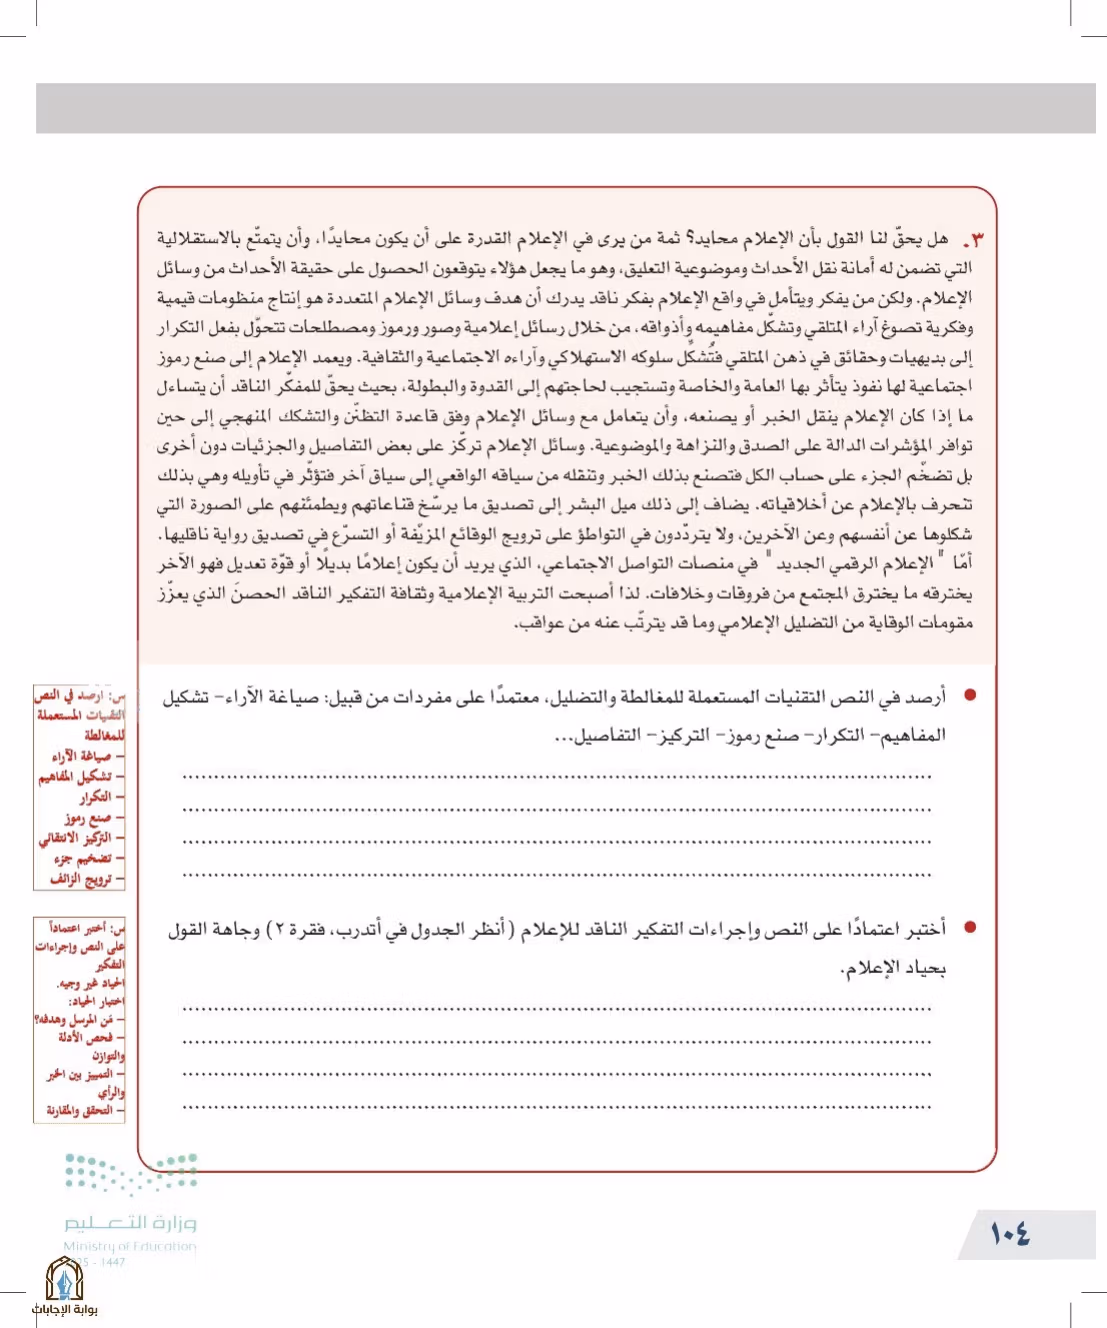 ٣. هل يحقّ لنا القول بأن الإعلام محايد؟ ثمة من يرى في الإعلام القدرة على أن يكون محايدًا، وأن يتمتّع بالاستقلالية
التي تضمن له أمانة نقل الأحداث وموضوعية التعليق، وهو ما يجعل هؤلاء يتوقعون الحصول على حقيقة الأحداث من وسائل
الإعلام. ولكن من يفكر ويتأمل في واقع الإعلام بفكر ناقد يدرك أن هدف وسائل الإعلام المتعددة هو إنتاج منظومات قيمية
وفكرية تصوغ آراء المتلقي وتشكّل مفاهيمه وأذواقه، من خلال رسائل إعلامية وصور ورموز ومصطلحات تتحوّل بفعل التكرار
إلى بديهيات وحقائق في ذهن المتلقي فتُشكِّل سلوكه الاستهلاكي وآراءه الاجتماعية والثقافية. ويعمد الإعلام إلى صنع رموز
اجتماعية لها نفوذ يتأثر بها العامة والخاصة وتستجيب لحاجتهم إلى القدوة والبطولة، بحيث يحقّ للمفكّر الناقد أن يتساءل
ما إذا كان الإعلام ينقل الخبر أو يصنعه، وأن يتعامل مع وسائل الإعلام وفق قاعدة التظنّن والتشكك المنهجي إلى حين
توافر المؤشرات الدالة على الصدق والنزاهة والموضوعية. وسائل الإعلام تركّز على بعض التفاصيل والجزئيات دون أخرى
بل تضخّم الجزء على حساب الكل فتصنع بذلك الخبر وتنقله من سياقه الواقعي إلى سياق آخر فتؤثّر في تأويله وهي بذلك
تنحرف بالإعلام عن أخلاقياته. يضاف إلى ذلك ميل البشر إلى تصديق ما يرسّخ قناعاتهم ويطمئنهم على الصورة التي
شكلوها عن أنفسهم وعن الآخرين، ولا يتردّدون في التواطؤ على ترويج الوقائع المزيّفة أو التسرّع في تصديق رواية ناقليها.
أمّا "الإعلام الرقمي الجديد" في منصات التواصل الاجتماعي، الذي يريد أن يكون إعلامًا بديلًا أو قوّة تعديل فهو الآخر
يخترقه ما يخترق المجتمع من فروقات وخلافات. لذا أصبحت التربية الإعلامية وثقافة التفكير الناقد الحصنَ الذي يعزّز
مقومات الوقاية من التضليل الإعلامي وما قد يترتّب عنه من عواقب.
● أرصد في النص التقنيات المستعملة للمغالطة والتضليل، معتمدًا على مفردات من قبيل: صياغة الآراء- تشكيل
المفاهيم- التكرار- صنع رموز- التركيز- التفاصيل...
س: ارصد في النص
التقنيات المستعملة
للمغالطة
– صياغة الآراء
– تشكيل المفاهيم
– التكرار
– صنع رموز
– التركيز الانتقائي
– تضخيم جزء
– ترويج الزائف
● أختبر اعتمادًا على النص وإجراءات التفكير الناقد للإعلام (أنظر الجدول في أتدرب، فقرة ٢) وجاهة القول
بحياد الإعلام.
س: أختبر اعتماداً
على النص وإجراءات
التفكير
الحياد غير وجيه.
اختبار الحياد:
– مَن المرسل وهدفه؟
– فحص الأدلة
والتوازن
– التمييز بين الخبر
والرأي
– التحقق والمقارنة
وزارة التعليم
Ministry of Education
- 1447
١٠٤
بوابة الإجابات